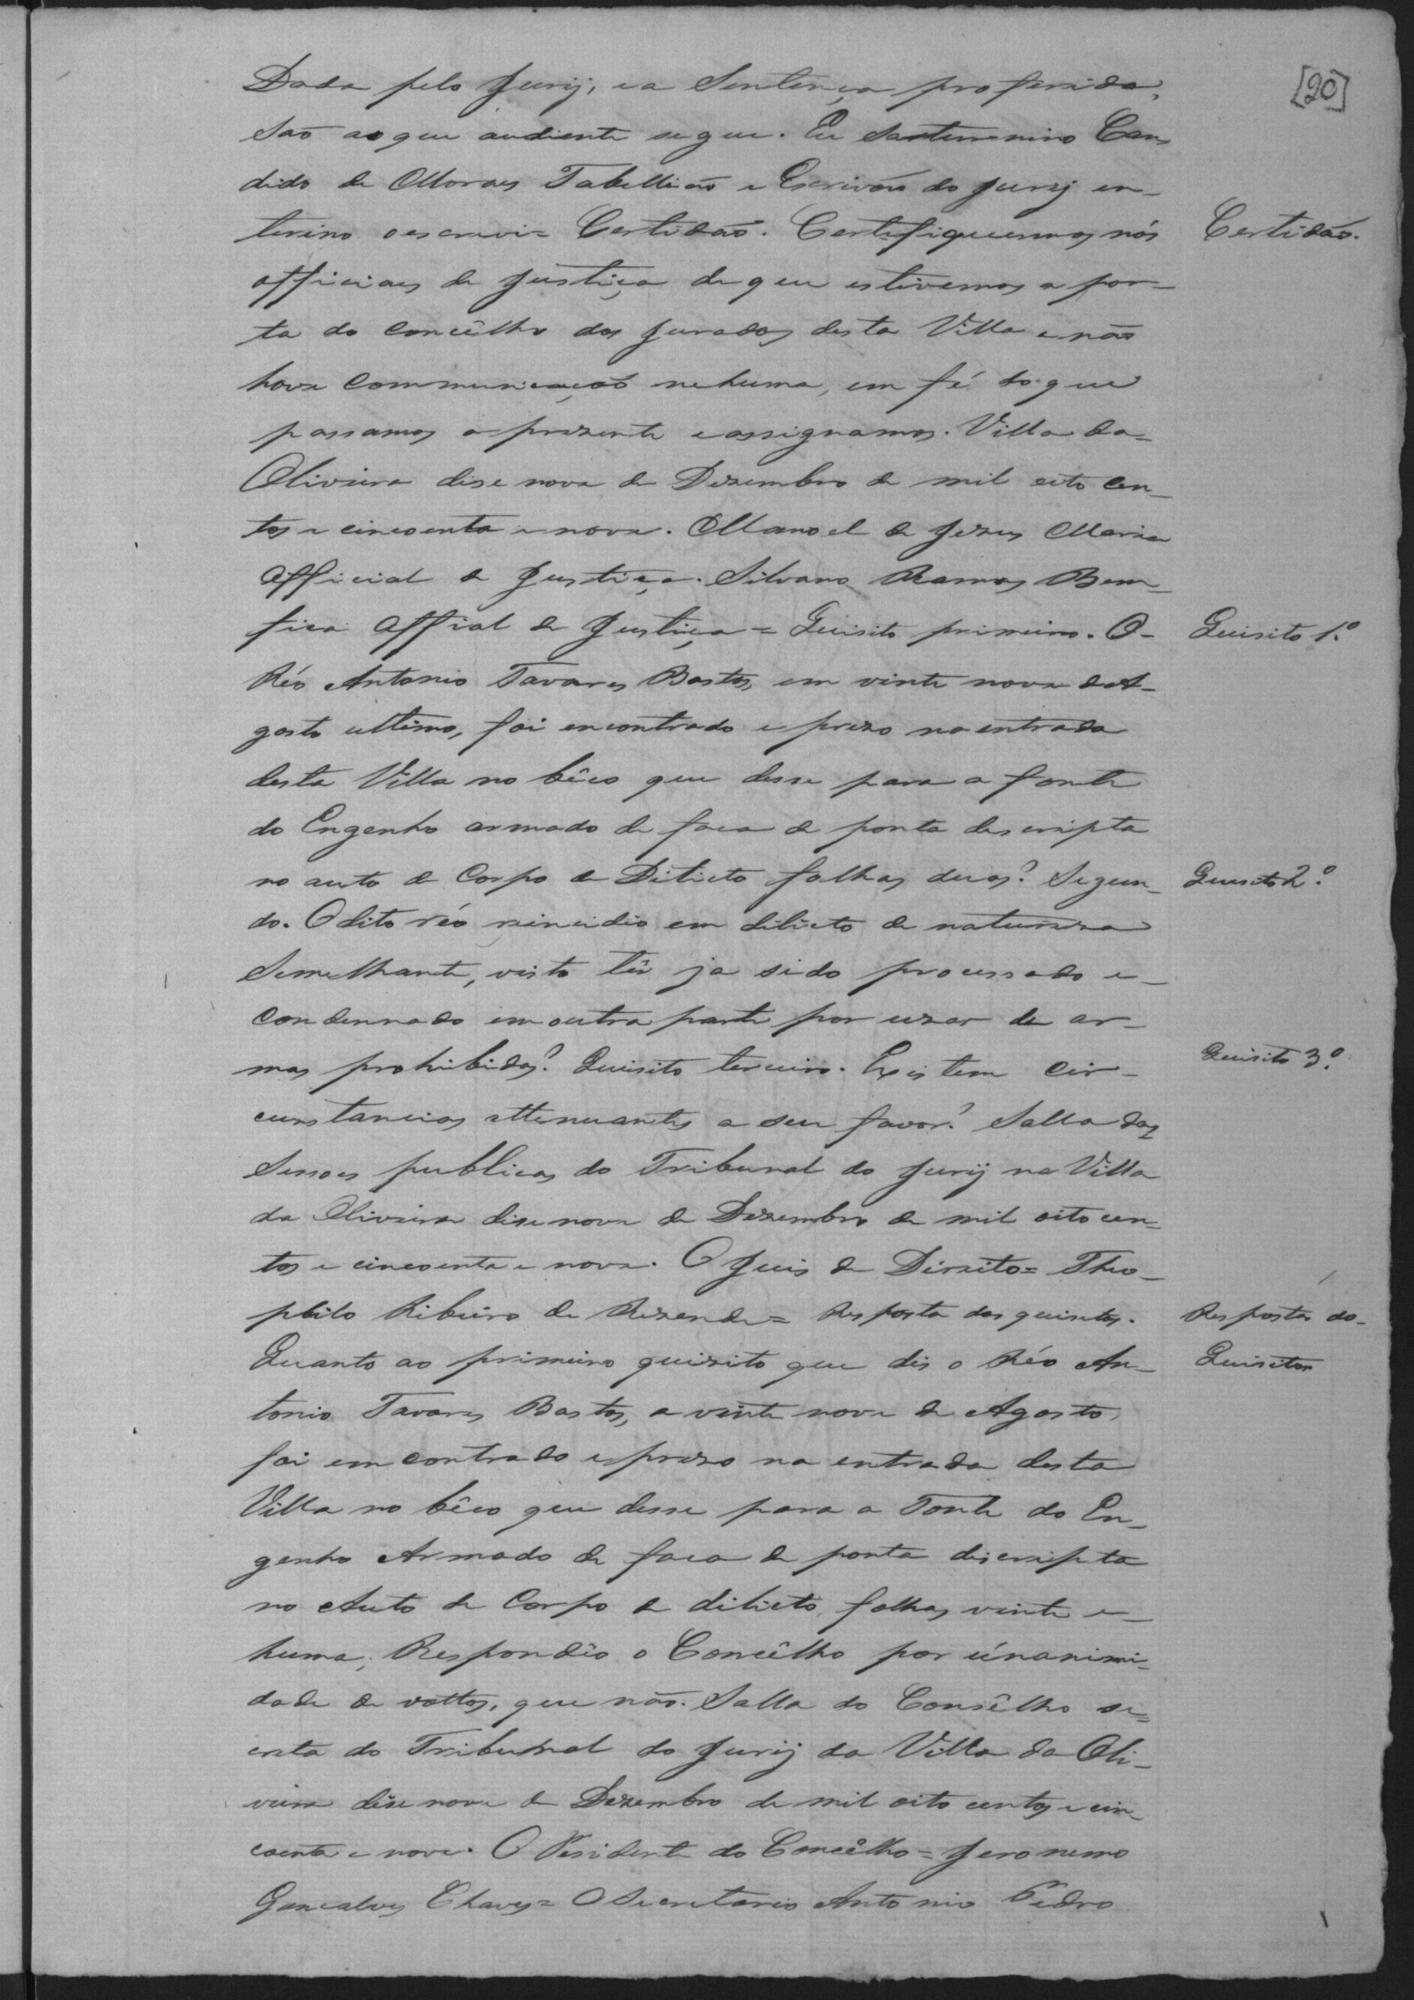 [20]
Dada pelo Jurij, e a Sentença proferida,
São as que audiente segue. Eu Saturnino Can
dido de Moraes Tabellião e Escrivão do Jurij en-
terino o escrevi = Certidão. Certifiquemos nós
Certidão.
officiaes de Justiça de que estivemos a por-
ta do concêlho dos Jurados desta Villa e não
houve communicação nehuma, em fé do que
passamos a prezente e assignamos. Villa da
Oliveira dise nove de Dezembro de mil oito cen-
tos e cincoenta e nove. Manoel de Jezus Maria
Official de Justiça. Silvano Ramos Bem-
fica Offial de Justiça = Quisito primeiro. O-
Quisito 1.º
Réo Antonio Tavares Bastos, em vinte nove de A-
gosto ultimo, foi encontrado e prezo na entrada
desta Villa no bêco que desse para a fonte
do Engenho armado de faca de ponta descripta
no auto de Corpo de Dilicto folhas duas? Segun-
Quisito 2.º
do. O dito réo reincidio em dilicto de natureza
Semelhante, visto têr ja sido processado e-
condennado em outra parte por uzar de ar-
mas prohibidas? Quisito terceiro. Existem cir-
Quisito 3.º
cunstancias attenuantes a seu favor? Salla das
Sessoes publicas do Tribunal do Jurij na Villa
da Oliveira dise nove de Dezembro de mil oito cen-
tos e cincoenta e nove. O Juis de Direito = Theo-
philo Ribeiro de Rezende = Resposta dos quisitos.
Respostas do-
Quanto ao primeiro quizito que dis o Réo An-
Quisitos
tonio Tavares Bastos, a vinte nove de Agosto,
foi emcontrado e prezo na entrada desta
Villa no bêco que desse para a Fonte do En-
genho Armado de faca de ponta discripta
no Auto de Corpo de dilicto, folhas vinte e-
huma; Respondêo o Concêlho por únanimi-
dade de vottos, que não. Salla do Consêlho se-
creta do Tribunal do Jurij da Villa da Oli-
veira dise nove de Dezembro de mil oito centos e cin-
coenta e nove. O Presidente do Concêlho = Jeronemo
Goncalves Chaves = O Secretario Antonio Pedro